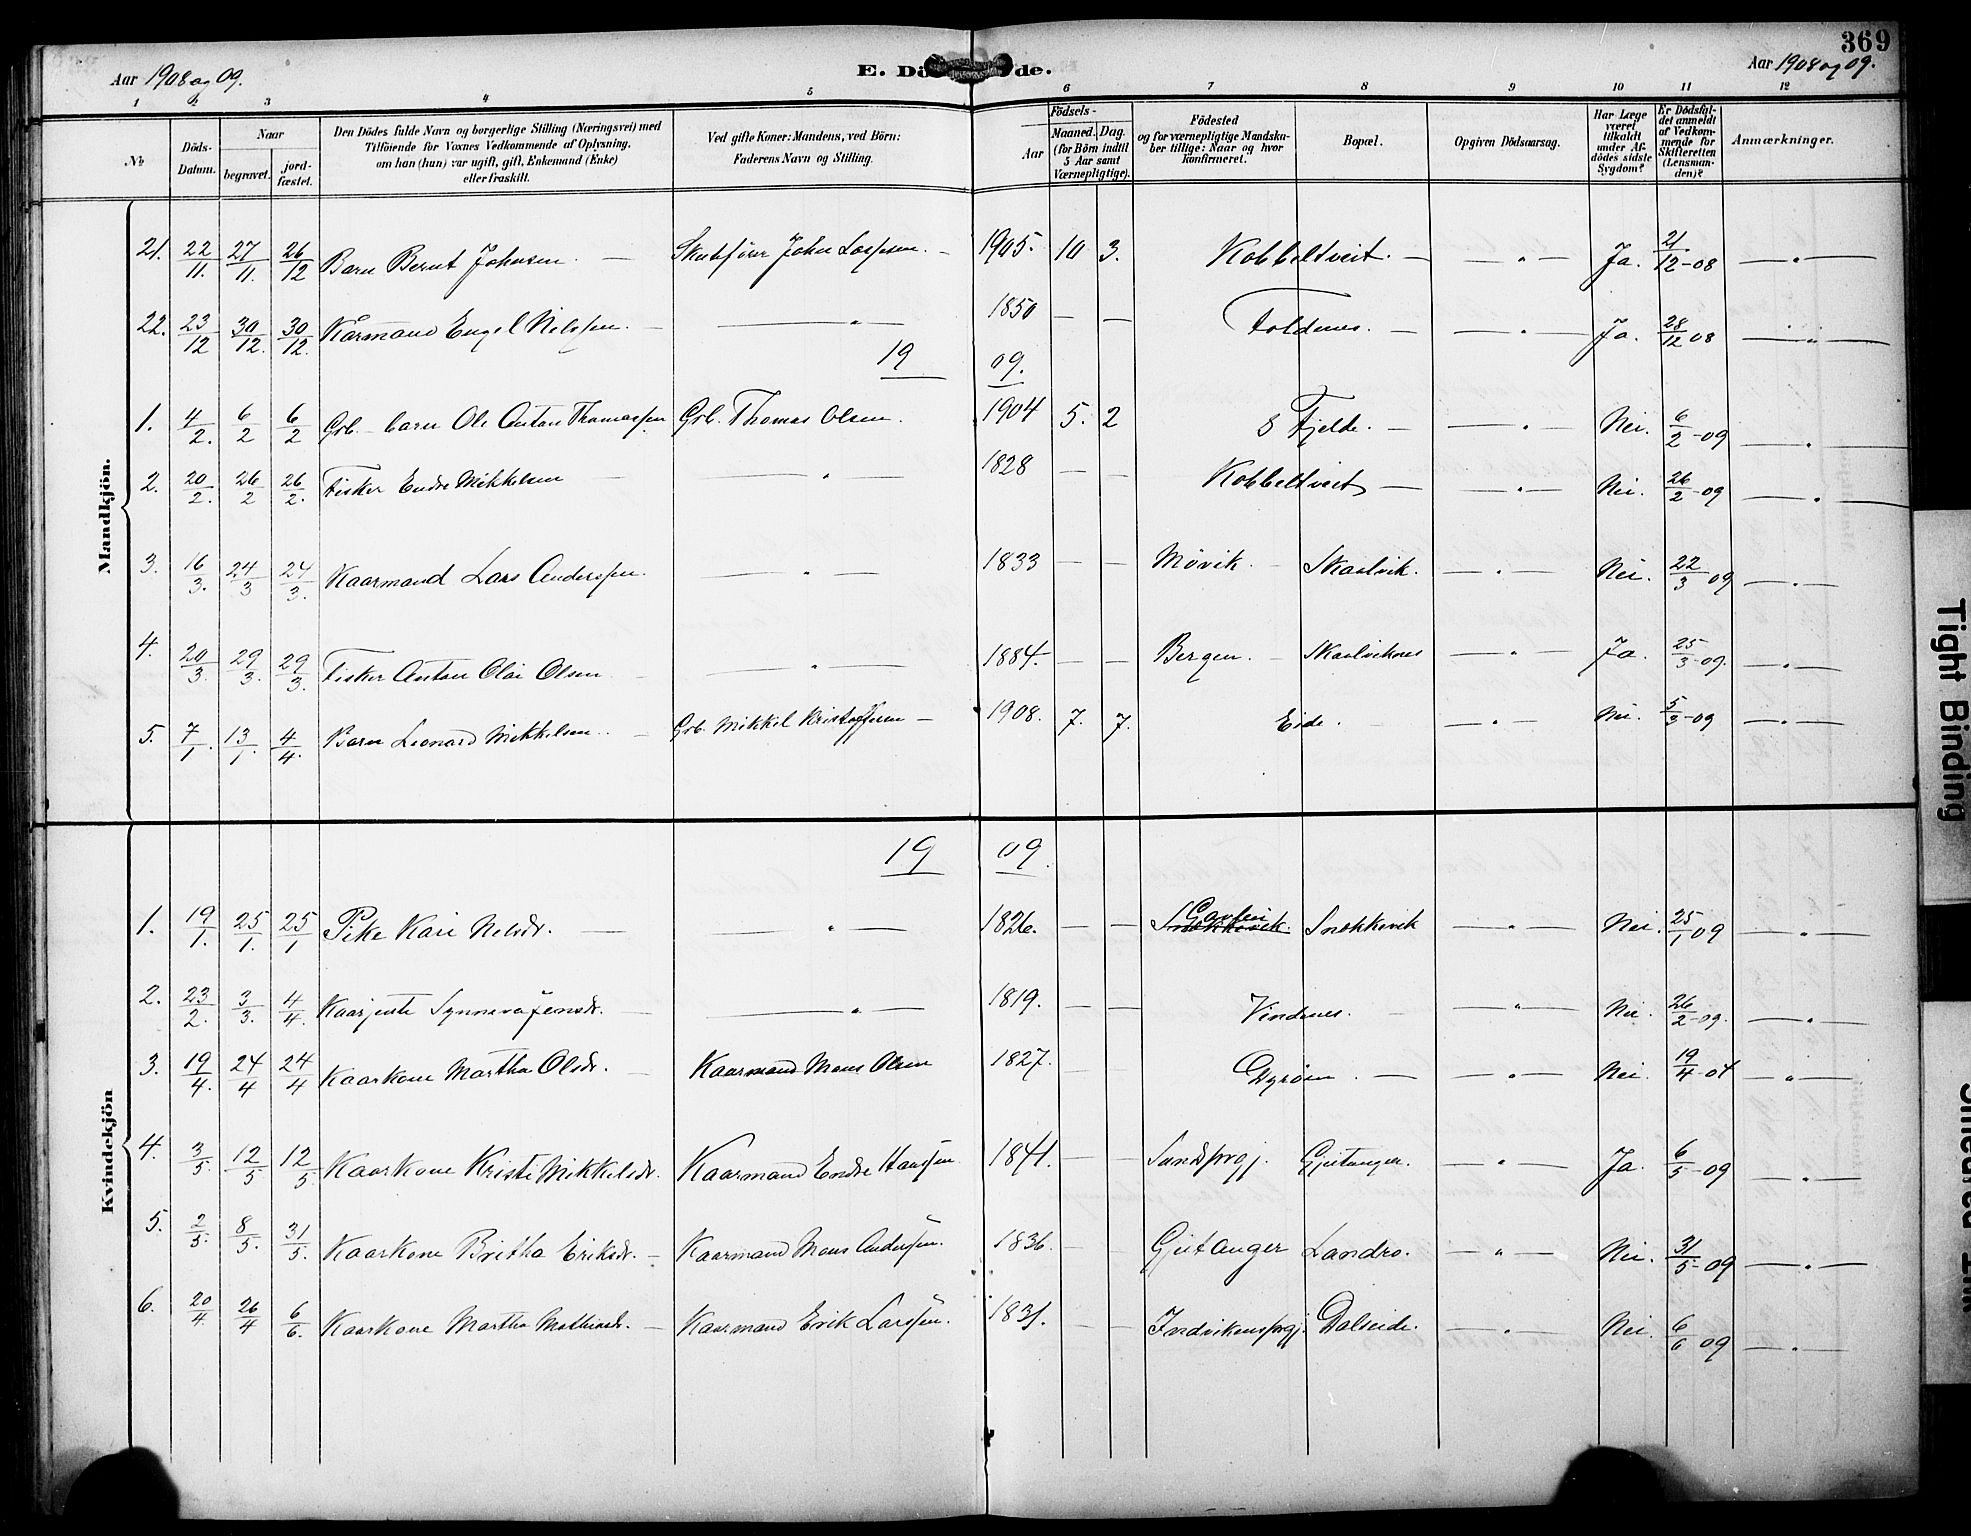 369
Aar 1908 og 09. E. Dö de. Aar 1908 og 09.
1 2 3 4 5 6 7 8 9 10 11 12
No
Döds-Datum.
Naar
begravet.
jord-fæstet.
Den Dödes fulde Navn og borgerlige Stilling (Næringsvei) med
Tilföiende for Voxnes Vedkommende af Oplysning,
om han (hun) var ugift, gift, Enkemand (Enke)
eller fraskilt.
Ved gifte Koner: Mandens, ved Börn:
Faderens Navn og Stilling.
Födsels-
Aar
Maaned. Dag.
(for Börn indtil
5 Aar samt
Værnepligtige).
Födested
og for værnepligtige Mandska-
ber tillige: Naar og hvor
konfirmeret.
Bopæl.
Opgiven Dödsaarsag.
Har Læge
været
tilkaldt
under Af-
dödes sidste
Sygdom?
Er Dödsfal-
det anmeldt
af Vedkom-
mende for
Skifteretten
(Lensman-
den)?
Anmærkninger.
Mandkjön.
21. 22/11. 27/11. 26/12 Barn Bernt Johnsen. — John — 1905. 10 3. Kobbeltveit. — — " — Ja. 21/12 - 08 — " —
22. 23/12 30/12. 30/12. Kårmand Engel Nilssen. — — " — 1850 — — Foldenes. — — " — Ja. 28/12 08 — " —
19 09.
1. 4/2. 6/2 6/2 Grb. barn Ole Anton Thomassen Grb. Thomas Olsen. 1904 5. 2 Ø Fjelde. — — " — Nei. 6/2 - 09 — " —
2. 20/2. 26/2 26/2. Fisker Endre Mikkelsen — — " — 1828 — — Kobbeltveit — — " — Nei. 26/2 - 09 — " —
3. 16/3. 24/3 24/3. Kaarmand Lars Anderssen. — " — 1833 — — Møvik. — Skaalvik. — " — Nei. 22/3 09 — " —
4. 20/3. 29/3. 29/3. Fisker Anton Olai Olsen — " — 1884. — — Bergen. — Skaalviknes — " — Ja. 25/3 - 09. — " —
5. 7/1. 13/1. 4/4. Barn Leonard Mikkelsen. — Grb. Mikkel Kristoffersen — 1908. 7. 7. Eide. — — " — Nei. 5/3 - 09 — " —
Kvindekjön
19 09.
1. 19/1. 25/1. 25/1 Pike Kari Nelsdr. — — " — 1826. — — Snekkevik. Snekkevik — " — Nei. 25/1 09 — " —
2. 23/2. 3/3. 4/4. Kaarjente Synneva Jensdr. — — " — 1819. — — Vindenes. — — " — Nei. 26/2 - 09. — " —
3. 19/4. 24/4 24/4 Kaarkone Martha Olsdr. — Kaarmand Mons Olsen 1827. — Dyrøen. — — " — Nei. 19/4 - 09 — " —
4. 3/5. 12/5 12/5 Kaarkone Kristi Mikkelsdr. Kaarmand Endre Hanssen 1841. — — Sundsprgj. Gjetanger. — " — Ja. 6/5 - 09 — " —
5. 2/5. 8/5. 31/5. Kaarkone Britha Eriksdr. — Kaarmand Mons Anderssen. 1836. — Gjetanger Landro. — " — Nei. 31/5 - 09 — " —
6. 20/4. 26/4 6/6. Kaarkone Martha Mathiasdr. — Kaarmand Erik Larssen. 1831. — — Indvikensprgj. Dalseide. — " — Nei. 6/6 09 — " —
Tight Binding